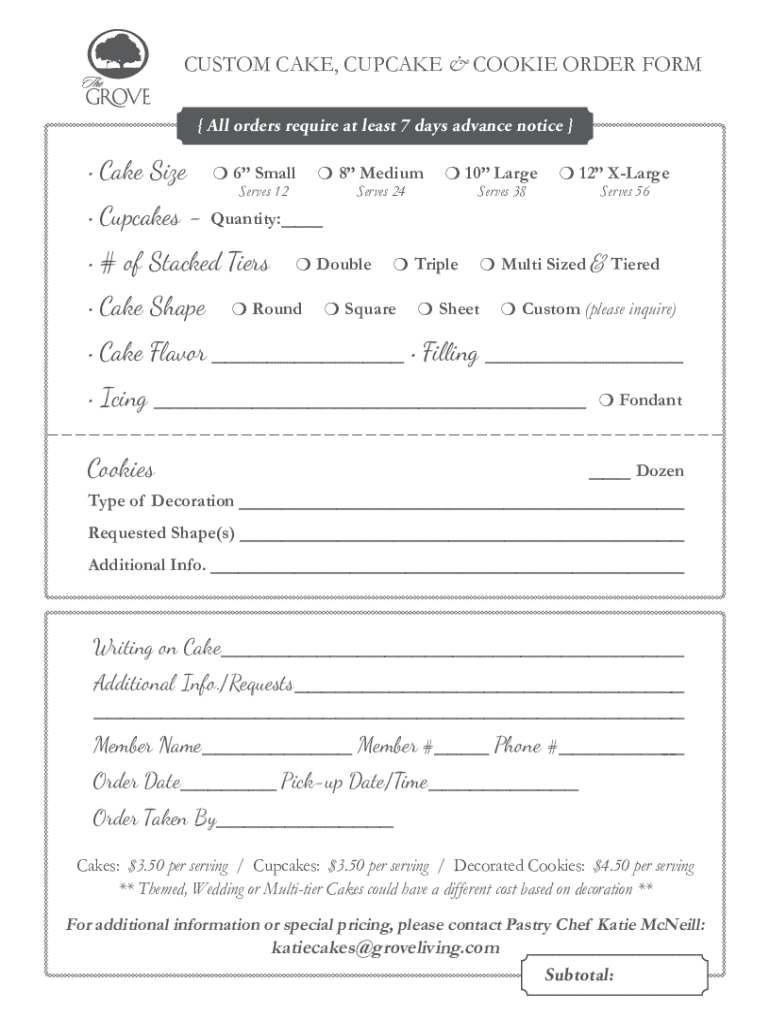 The
GROVE
CUSTOM CAKE, CUPCAKE & COOKIE ORDER FORM
{ All orders require at least 7 days advance notice }
· Cake Size ❍ 6” Small ❍ 8” Medium ❍ 10” Large ❍ 12” X-Large
Serves 12 Serves 24 Serves 38 Serves 56
· Cupcakes - Quantity:_____
· # of Stacked Tiers ❍ Double ❍ Triple ❍ Multi Sized & Tiered
· Cake Shape ❍ Round ❍ Square ❍ Sheet ❍ Custom (please inquire)
· Cake Flavor ____________________ · Filling ____________________
· Icing ____________________ ❍ Fondant
Cookies _____ Dozen
Type of Decoration ____________________
Requested Shape(s) ____________________
Additional Info. ____________________
Writing on Cake____________________
Additional Info./Requests____________________
____________________
Member Name_______________ Member #______ Phone #____________
Order Date__________ Pick-up Date/Time_______________
Order Taken By__________________
Cakes: $3.50 per serving / Cupcakes: $3.50 per serving / Decorated Cookies: $4.50 per serving
** Themed, Wedding or Multi-tier Cakes could have a different cost based on decoration **
For additional information or special pricing, please contact Pastry Chef Katie McNeill:
katiecakes@groveliving.com
Subtotal: